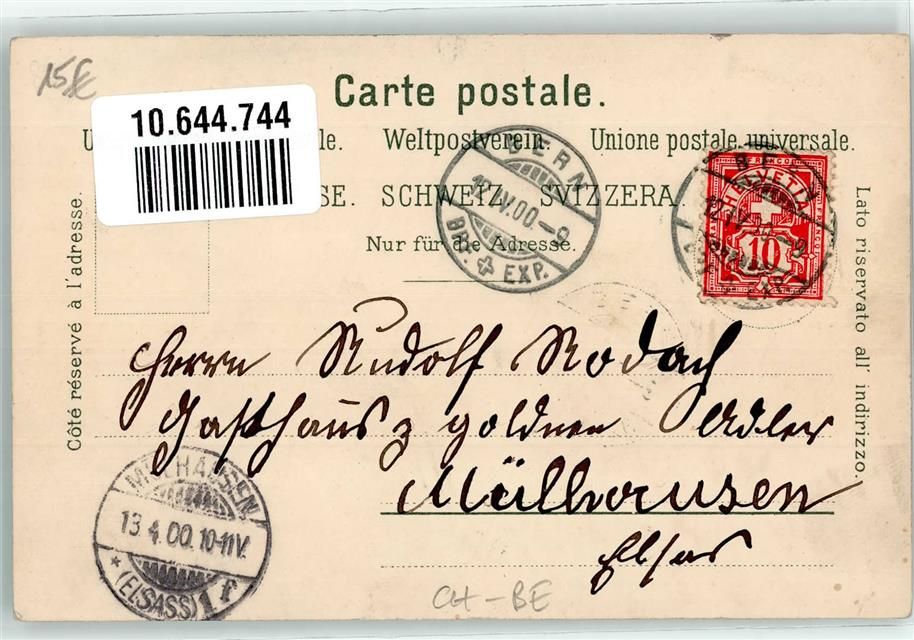 15£
Carte postale.
10.644.744
Weltpostverein. Unione postale universale.
SCHWEIZ. SVIZZERA.
Nur für die Adresse.
Côté réservé à l'adresse.
Lato riservato all' indirizzo.
BERN
BRF. EXP.
FRANCO
HELVETIA
10
Herrn Rudolf Rodach
Gasthaus z goldnen Adler
Müllhausen
Elsas
MÜLHAUSEN
13.4.00.10-11V.
* (ELSASS) 1 f
CH-BE